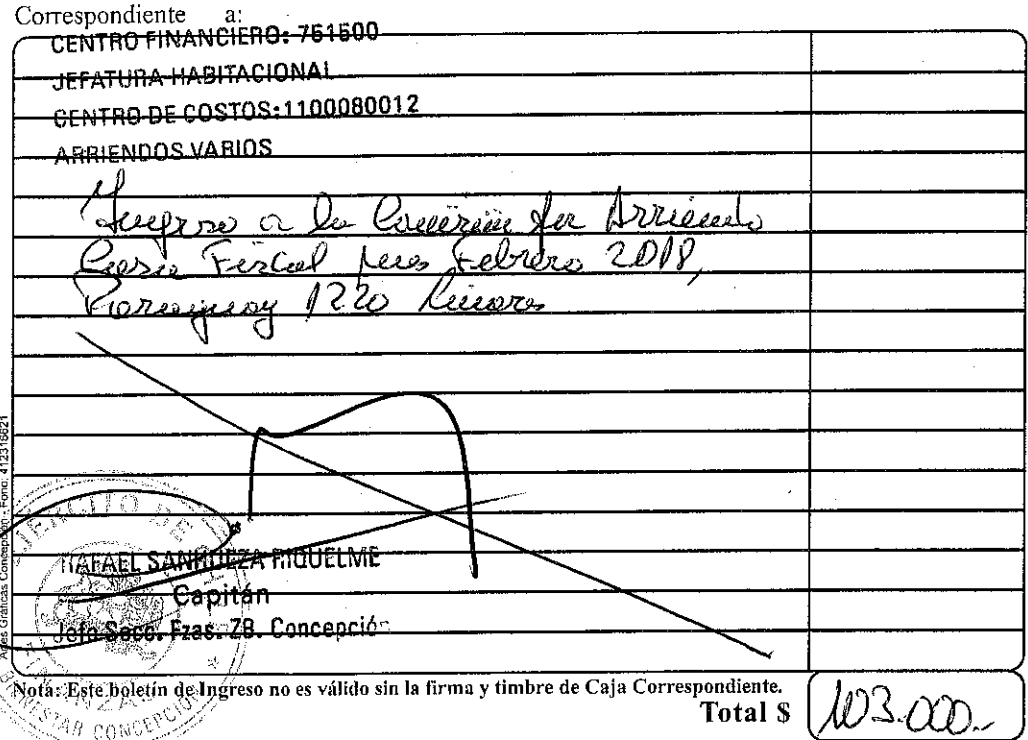 Correspondiente a:
CENTRO FINANCIERO: 751500
JEFATURA HABITACIONAL
CENTRO DE COSTOS:1100080012
ARRIENDOS VARIOS
Ingreso a la Comisión por Arriendo
Casa Fiscal mes Febrero 2018,
Paraguay 1220 Linares
Artes Gráficas Concepción - Fono: 412316621
EJERCITO DE
RAFAEL SANHUEZA RIQUELME
Capitán
Jefe Secc. Fzas. ZB. Concepción
FINANZAS
BIENESTAR CONCEPCIÓN
Nota: Este boletín de Ingreso no es válido sin la firma y timbre de Caja Correspondiente.
Total $ 103.000.-